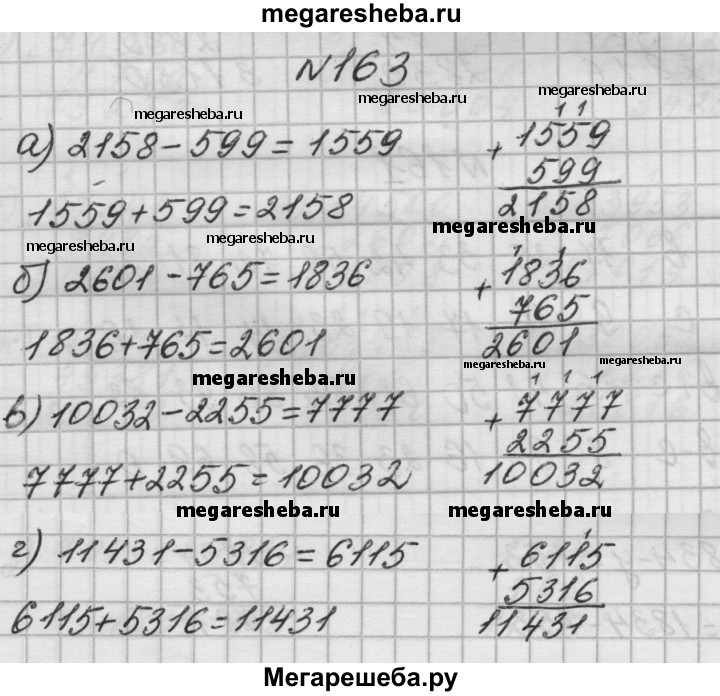 megaresheba.ru
№163
megaresheba.ru
megaresheba.ru
megaresheba.ru
а) 2158 - 599 = 1559
1559 + 599 = 2158
1 1
+ 1559
599
2158
megaresheba.ru
megaresheba.ru
megaresheba.ru
б) 2601 - 765 = 1836
1836 + 765 = 2601
1 1
+ 1836
765
2601
megaresheba.ru
megaresheba.ru
в) 10032 - 2255 = 7777
7777 + 2255 = 10032
1 1 1
+ 7777
2255
10032
megaresheba.ru
megaresheba.ru
г) 11431 - 5316 = 6115
6115 + 5316 = 11431
1
+ 6115
5316
11431
Мегарешеба.ру